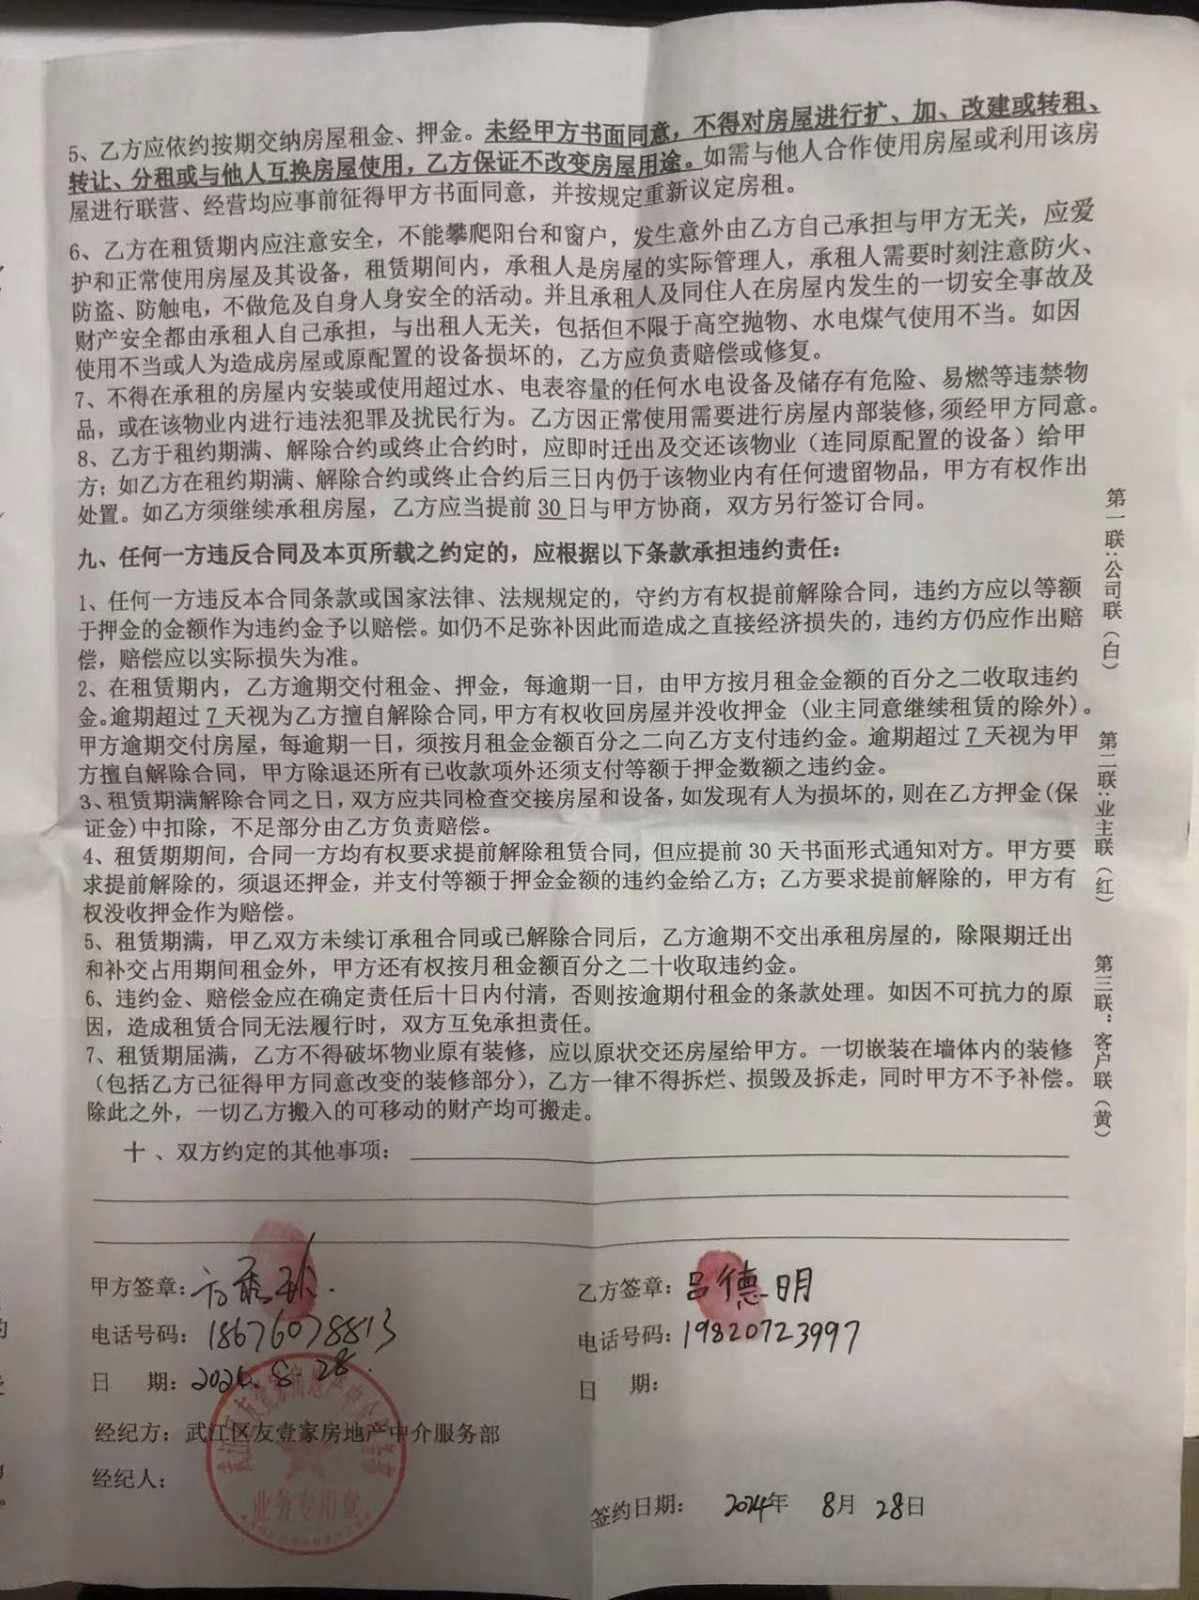 5、乙方应依约按期交纳房屋租金、押金。未经甲方书面同意，不得对房屋进行扩、加、改建或转租、
转让、分租或与他人互换房屋使用，乙方保证不改变房屋用途。如需与他人合作使用房屋或利用该房
屋进行联营、经营均应事前征得甲方书面同意，并按规定重新议定房租。
6、乙方在租赁期内应注意安全，不能攀爬阳台和窗户，发生意外由乙方自己承担与甲方无关，应爱
护和正常使用房屋及其设备，租赁期间内，承租人是房屋的实际管理人，承租人需要时刻注意防火、
防盗、防触电，不做危及自身人身安全的活动。并且承租人及同住人在房屋内发生的一切安全事故及
财产安全都由承租人自己承担，与出租人无关，包括但不限于高空抛物、水电煤气使用不当。如因
使用不当或人为造成房屋或原配置的设备损坏的，乙方应负责赔偿或修复。
7、不得在承租的房屋内安装或使用超过水、电表容量的任何水电设备及储存有危险、易燃等违禁物
品，或在该物业内进行违法犯罪及扰民行为。乙方因正常使用需要进行房屋内部装修，须经甲方同意。
8、乙方于租约期满、解除合约或终止合约时，应即时迁出及交还该物业（连同原配置的设备）给甲
方；如乙方在租约期满、解除合约或终止合约后三日内仍于该物业内有任何遗留物品，甲方有权作出
处置。如乙方须继续承租房屋，乙方应当提前30日与甲方协商，双方另行签订合同。
九、任何一方违反合同及本页所载之约定的，应根据以下条款承担违约责任：
1、任何一方违反本合同条款或国家法律、法规规定的，守约方有权提前解除合同，违约方应以等额
于押金的金额作为违约金予以赔偿。如仍不足弥补因此而造成之直接经济损失的，违约方仍应作出赔
偿，赔偿应以实际损失为准。
2、在租赁期内，乙方逾期交付租金、押金，每逾期一日，由甲方按月租金金额的百分之二收取违约
金。逾期超过7天视为乙方擅自解除合同，甲方有权收回房屋并没收押金（业主同意继续租赁的除外）。
甲方逾期交付房屋，每逾期一日，须按月租金金额百分之二向乙方支付违约金。逾期超过7天视为甲
方擅自解除合同，甲方除退还所有已收款项外还须支付等额于押金数额之违约金。
3、租赁期满解除合同之日，双方应共同检查交接房屋和设备，如发现有人为损坏的，则在乙方押金(保
证金)中扣除，不足部分由乙方负责赔偿。
4、租赁期期间，合同一方均有权要求提前解除租赁合同，但应提前30天书面形式通知对方。甲方要
求提前解除的，须退还押金，并支付等额于押金金额的违约金给乙方；乙方要求提前解除的，甲方有
权没收押金作为赔偿。
5、租赁期满，甲乙双方未续订承租合同或已解除合同后，乙方逾期不交出承租房屋的，除限期迁出
和补交占用期间租金外，甲方还有权按月租金额百分之二十收取违约金。
6、违约金、赔偿金应在确定责任后十日内付清，否则按逾期付租金的条款处理。如因不可抗力的原
因，造成租赁合同无法履行时，双方互免承担责任。
7、租赁期届满，乙方不得破坏物业原有装修，应以原状交还房屋给甲方。一切嵌装在墙体内的装修
（包括乙方已征得甲方同意改变的装修部分），乙方一律不得拆烂、损毁及拆走，同时甲方不予补偿。
除此之外，一切乙方搬入的可移动的财产均可搬走。
十、双方约定的其他事项：
甲方签章：
电话号码：18676078813
日 期：2024.8.28.
经纪方：武江区友壹家房地产中介服务部
经纪人：
业务专用章
乙方签章：吕德明
电话号码：19820723997
日 期：
签约日期： 2024年 8月 28日
第一联：公司联（白）
第二联：业主联（红）
第三联：客户联（黄）